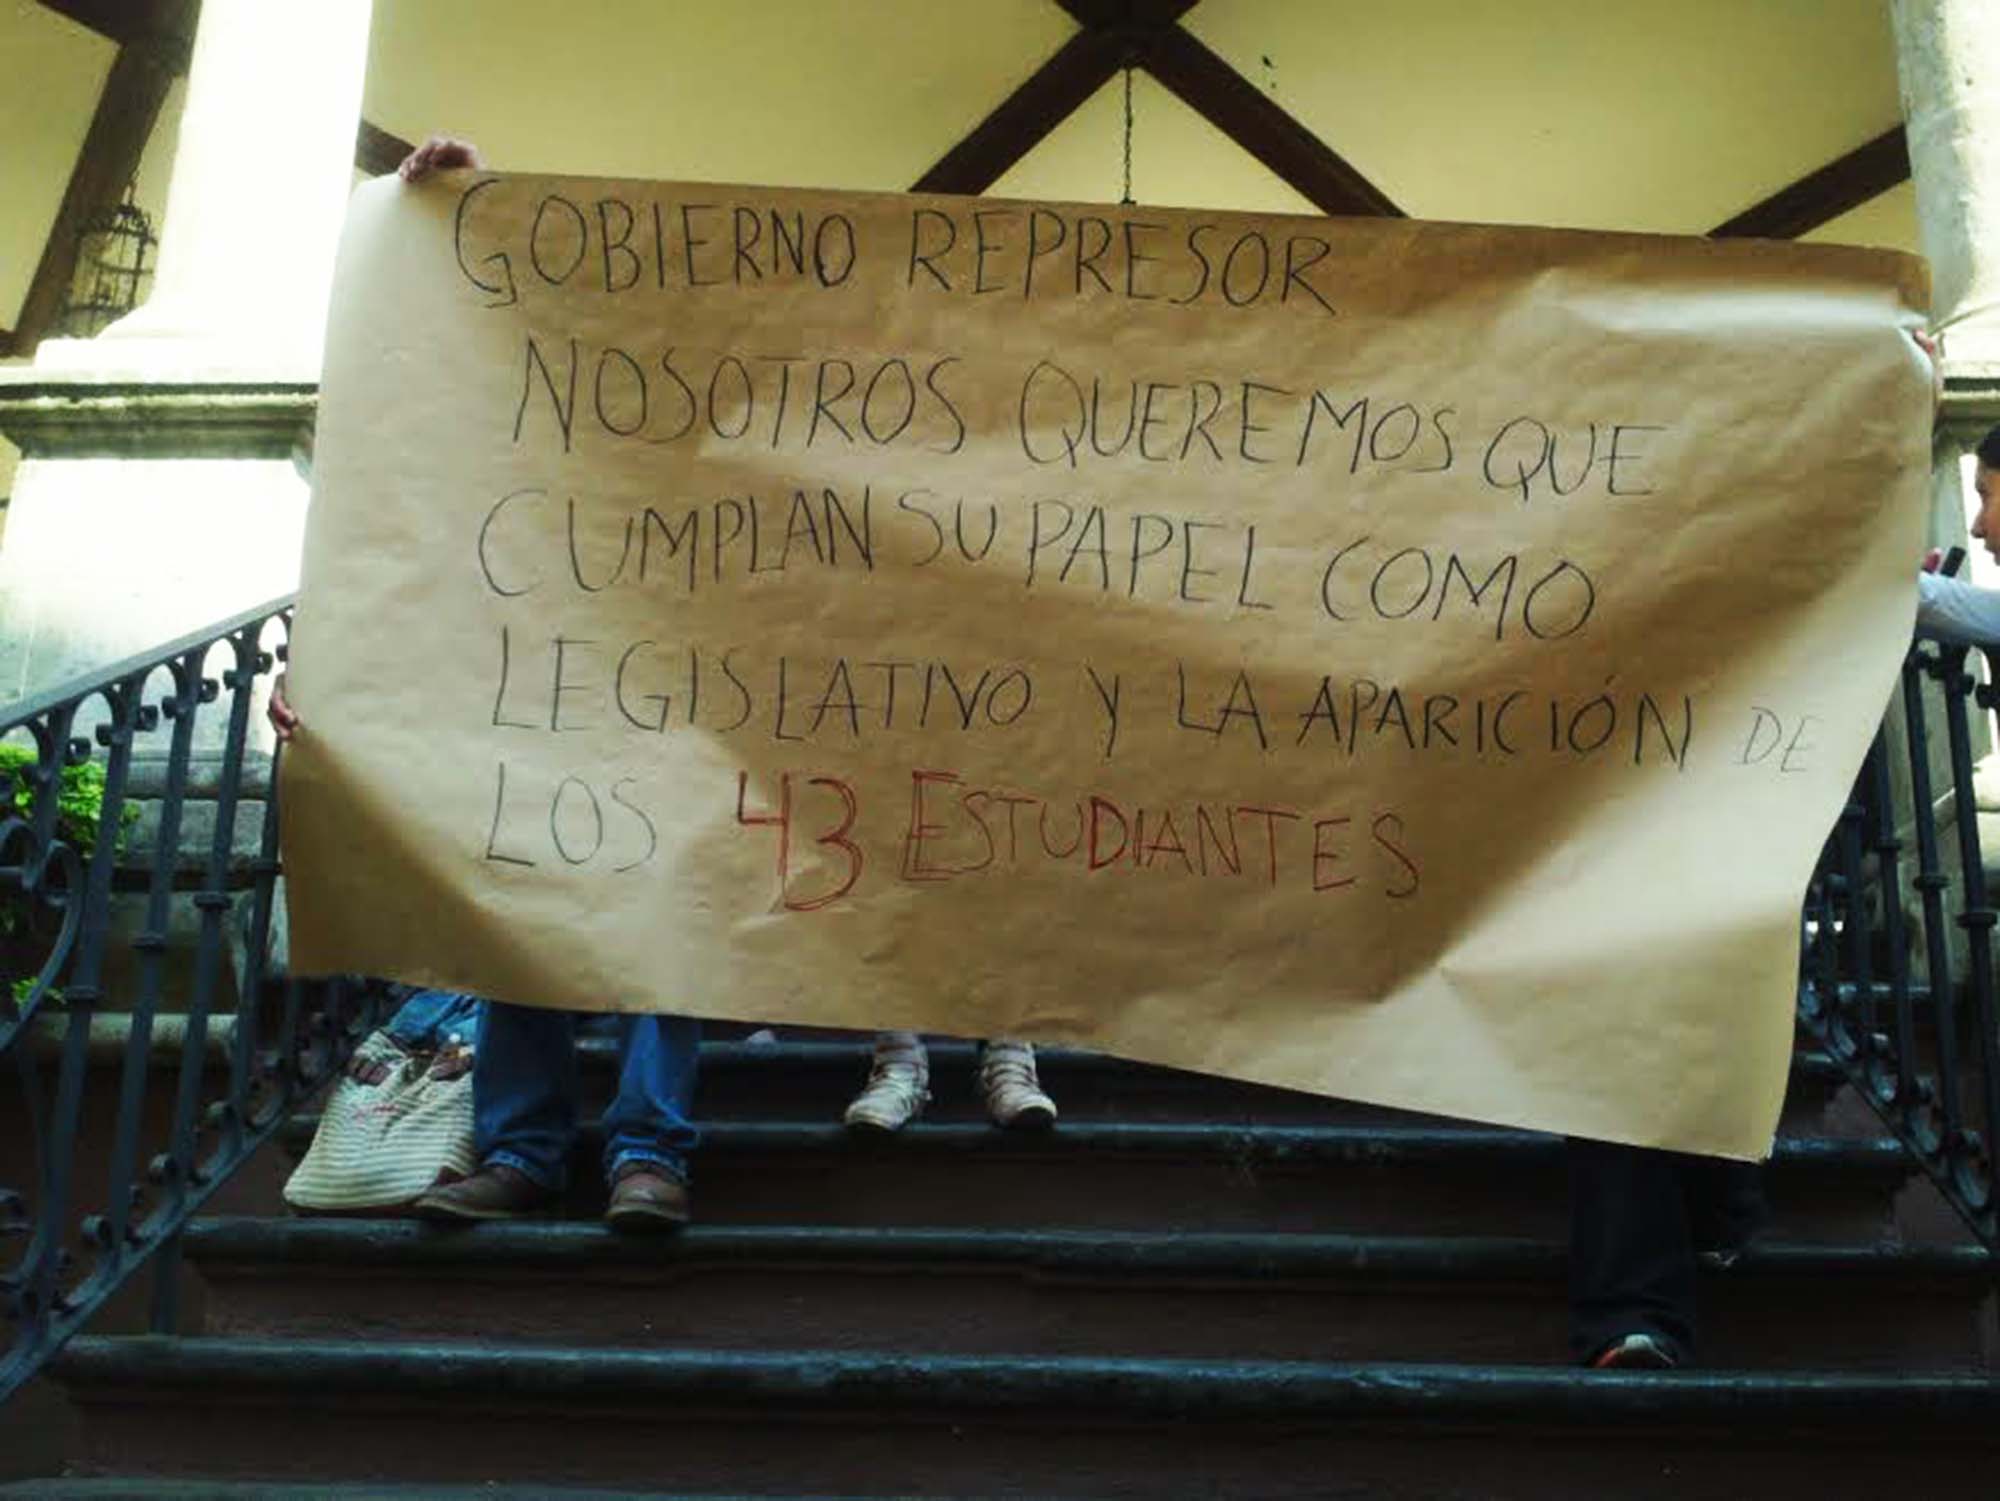 GOBIERNO REPRESOR
NOSOTROS QUEREMOS QUE
CUMPLAN SU PAPEL COMO
LEGISLATIVO Y LA APARICIÓN DE
LOS 43 ESTUDIANTES